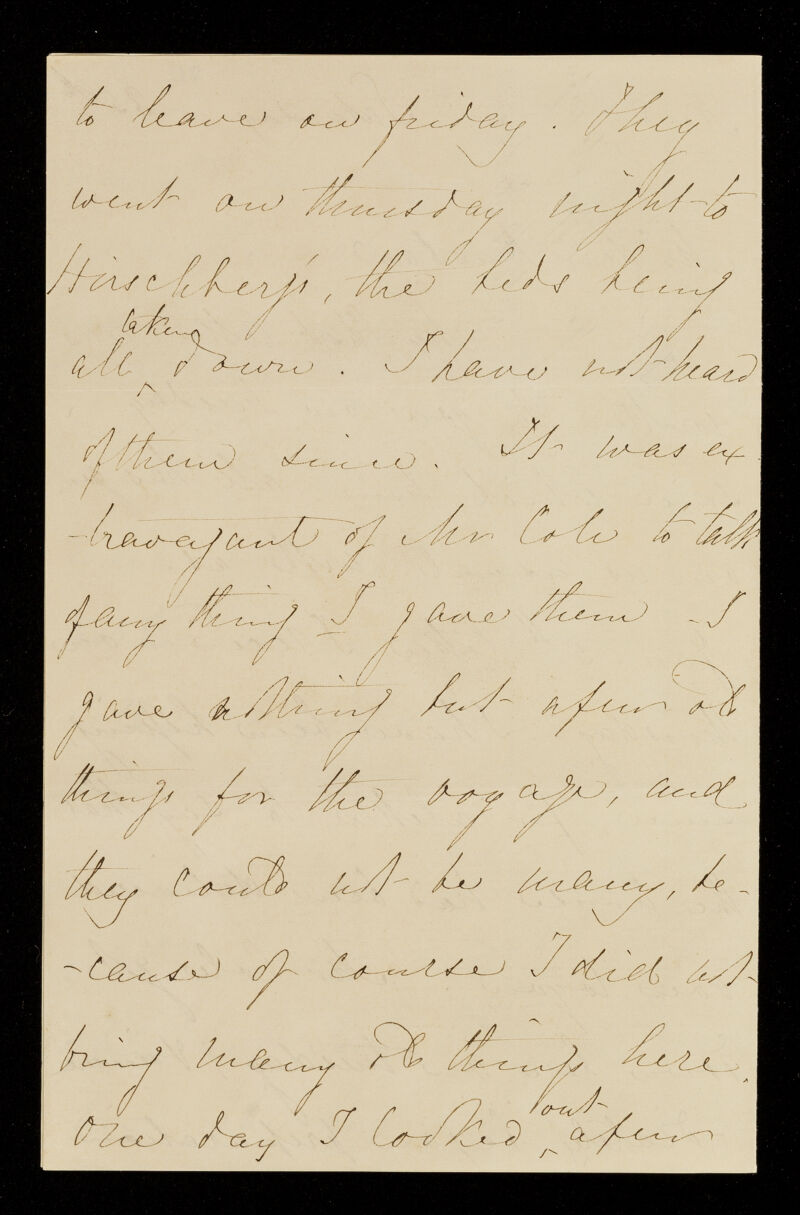 to leave on friday. They
went on thursday night to
Hirschberg's, the beds being
all taken down. I have not heard
of them since. It was ex
-travagant of Mr Cole to talk
of any thing I gave them - I
gave nothing but a few old
things for the voyage, and
they could not be many, be-
-cause of course I did not
bring many old things here.
One day I looked out a few